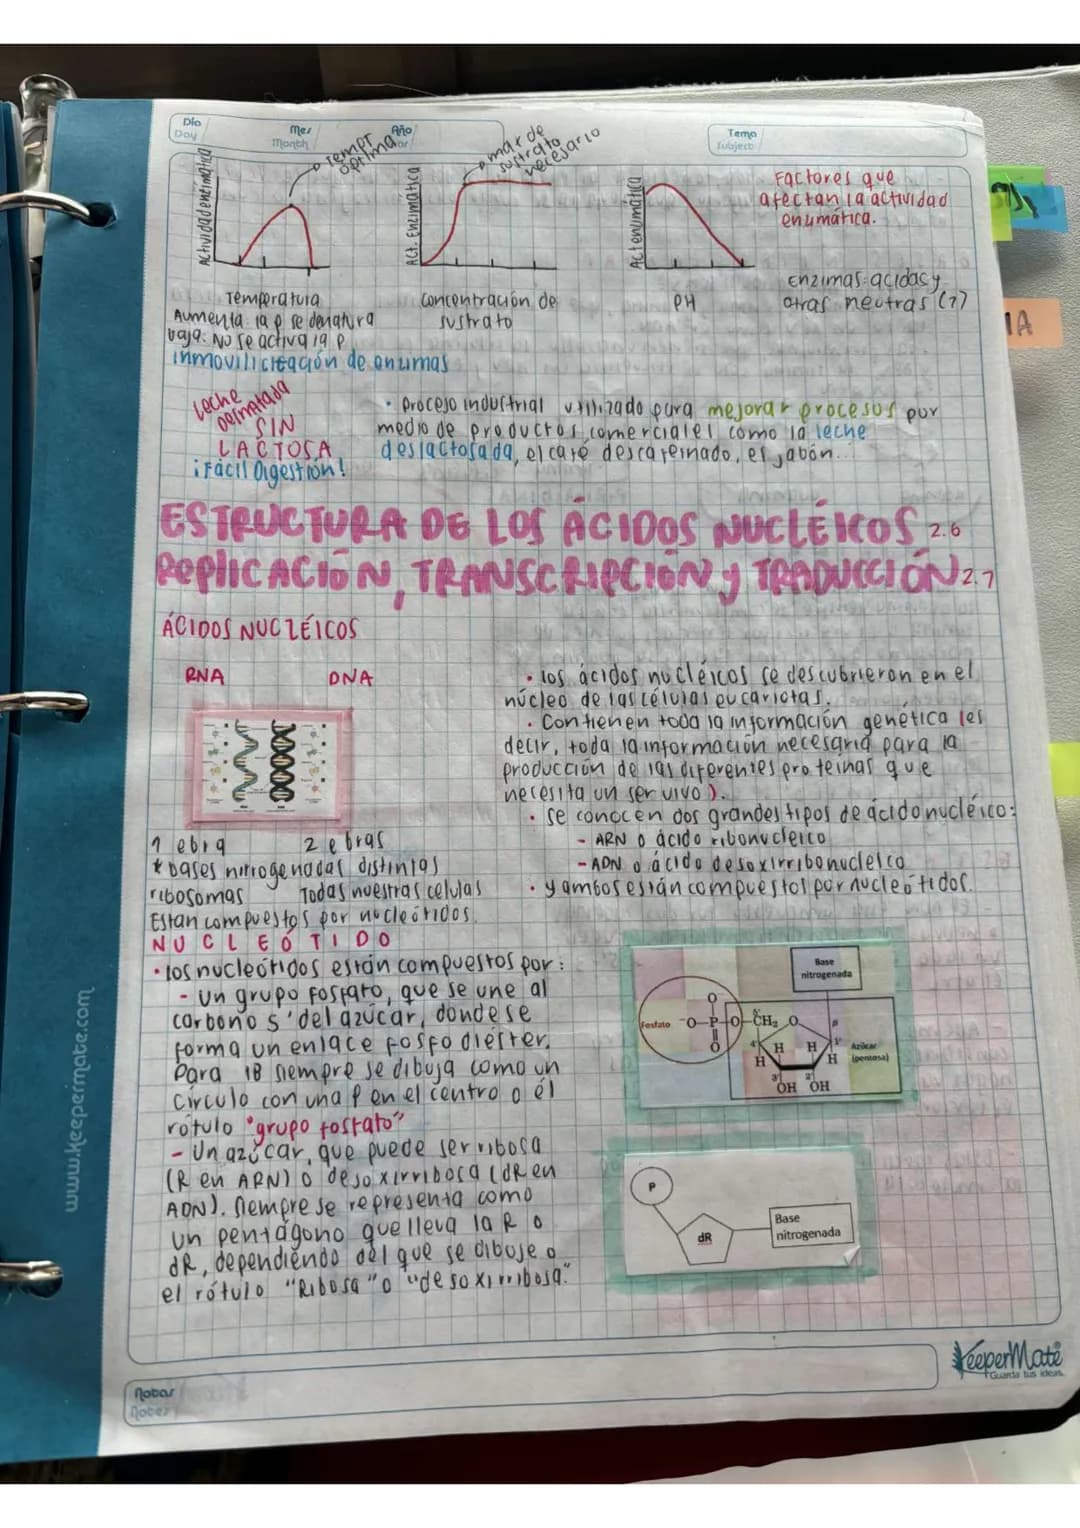 Día
Day
Mes
Month
Año
Tema
Subject
Actividad enzimática
Tempr
óptima
Temperatura
Act. Enzimática
max de
sustrato
necesario
Concentración de
sustrato
Act enzimática
PH
Factores que
afectan la actividad
enzimática.
Enzimas: acidas y
otras neutras (7)
Aumenta: la p se denatura
baja: No se activa la p
inmovilización de enzimas
Leche
Deslactada
SIN
LACTOSA
¡Fácil Digestión!
• Proceso industrial utilizado para mejorar procesos por
medio de productos comerciales como la leche
deslactosada, el café descafeinado, el jabón...
ESTRUCTURA DE LOS ÁCIDOS NUCLÉICOS 2.6
REPLICACIÓN, TRANSCRIPCIÓN y TRADUCCIÓN 2.7
ÁCIDOS NUCLÉICOS
RNA DNA
1 ebra 2 ebras
* bases nitrogenadas distintas
ribosomas Todas nuestras celulas
Estan compuestos por nucleótidos.
• los ácidos nucléicos se descubrieron en el
núcleo de las células eucariotas.
• Contienen toda la información genética (es
decir, toda la información necesaria para la
producción de las diferentes proteinas que
necesita un ser vivo).
• se conocen dos grandes tipos de ácido nucléico:
- ARN o ácido ribonucleico
- ADN o ácido desoxirribonucleico
• y ambos están compuestos por nucleótidos.
NUCLEÓTIDO
• los nucleótidos están compuestos por:
- Un grupo fosfato, que se une al
carbono 5' del azúcar, donde se
forma un enlace fosfo diéster.
Para IB siempre se dibuja como un
circulo con una P en el centro o el
rótulo "grupo fosfato"
- Un azúcar, que puede ser ribosa
(R en ARN) o desoxirribosa (dR en
ADN). Siempre se representa como
un pentágono que lleva la R o
dR, dependiendo del que se dibuje o
el rótulo "Ribosa" o "desoxirribosa."
Base
nitrogenada
Fosfato
⁻O-P-O-CH₂ O
O
O
5'
β
4'
1'
H H
H H
3' 2'
OH OH
Azúcar
(pentosa)
P
dR
Base
nitrogenada
www.keepermate.com
Notas
Notes
KeeperMate
Guarda tus ideas.